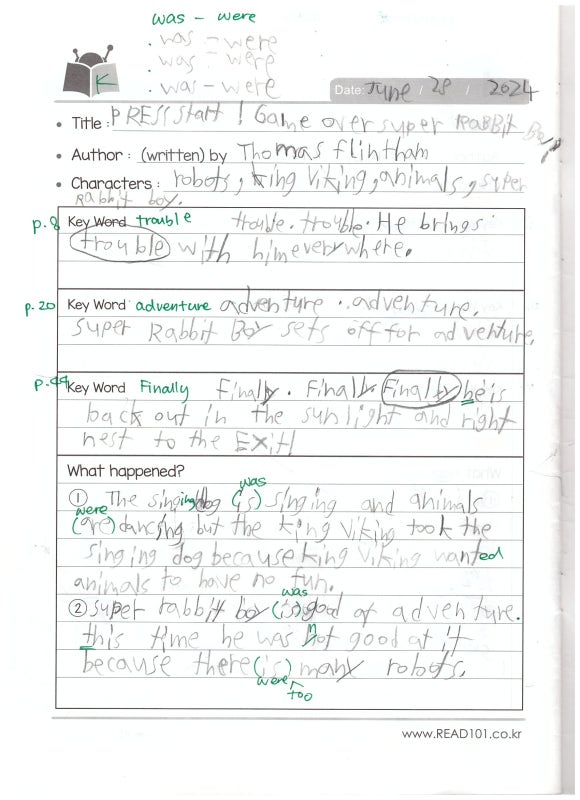 was - were
. was - were
. was - were
K
. was - were
Date: June / 28 / 2024
• Title : PRESS start ! Game over super RABBiT Boy
• Author : (written) by Thomas flintham
• Characters : robots, king Viking, animals, super
rabbit boy.
p.8 Key Word trouble trouble. trouble. He brings
trouble with him everywhere.
p.20 Key Word adventure adventure . adventure.
Super Rabbit Boy sets off for adventure.
Key Word Finally Finally. Finally Finally he is
back out in the sunlight and right
nest to the Exit
What happened?
was
① The singing dog (is) singing and animals
were
(are) dancing but the king Viking took the
singing dog because king Viking wanted
animals to have no fun.
was
② super rabbit boy (is) good at adventure.
this time he was not good at it
because there (is) many robots.
were too
www.READ101.co.kr